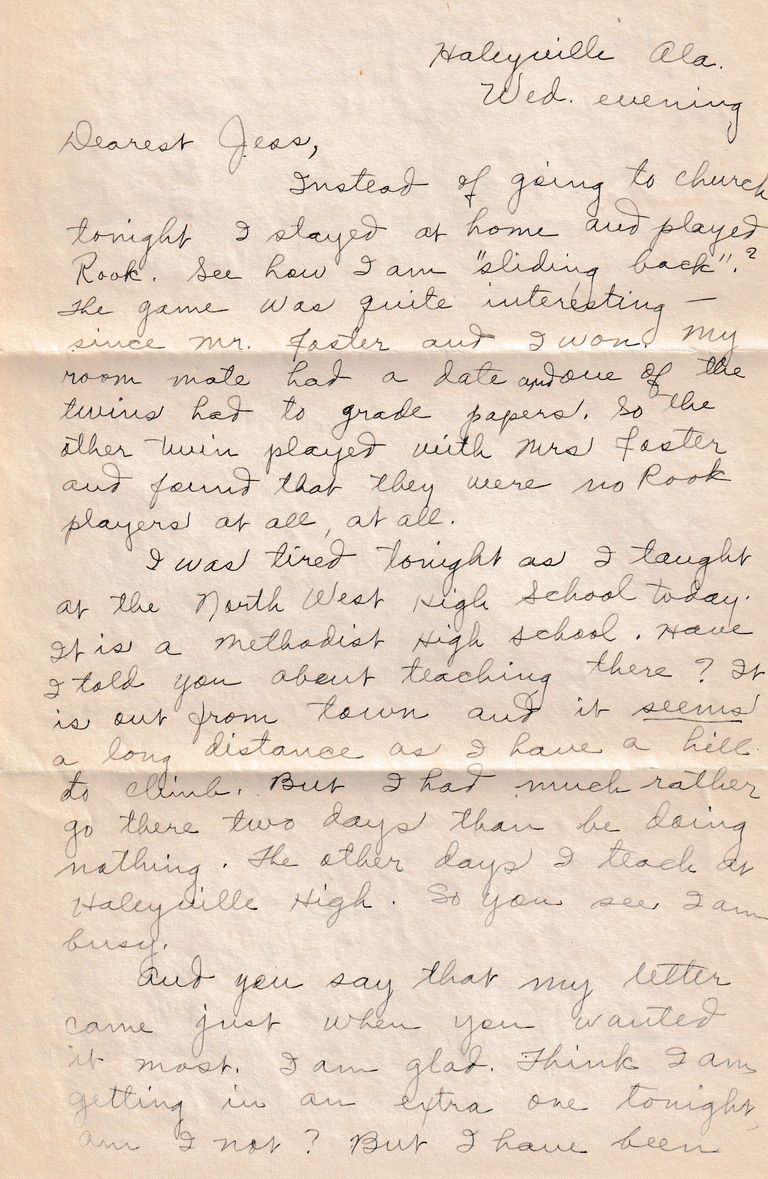 Haleyville Ala.
Wed. evening
Dearest Jess,
Instead of going to church
tonight I stayed at home and played
Rook. See how I am "sliding back".?
The game was quite interesting —
since Mr. Foster and I won. My
room mate had a date and one of the
twins had to grade papers. So the
other twin played with Mrs Foster
and found that they were no Rook
players at all, at all.
I was tired tonight as I taught
at the North West High School today.
It is a Methodist High School. Have
I told you about teaching there? It
is out from town and it seems
a long distance as I have a hill
to climb. But I had much rather
go there two days than be doing
nothing. The other days I teach at
Haleyville High. So you see I am
busy.
And you say that my letter
came just when you wanted
it most. I am glad. Think I am
getting in an extra one tonight,
am I not? But I have been